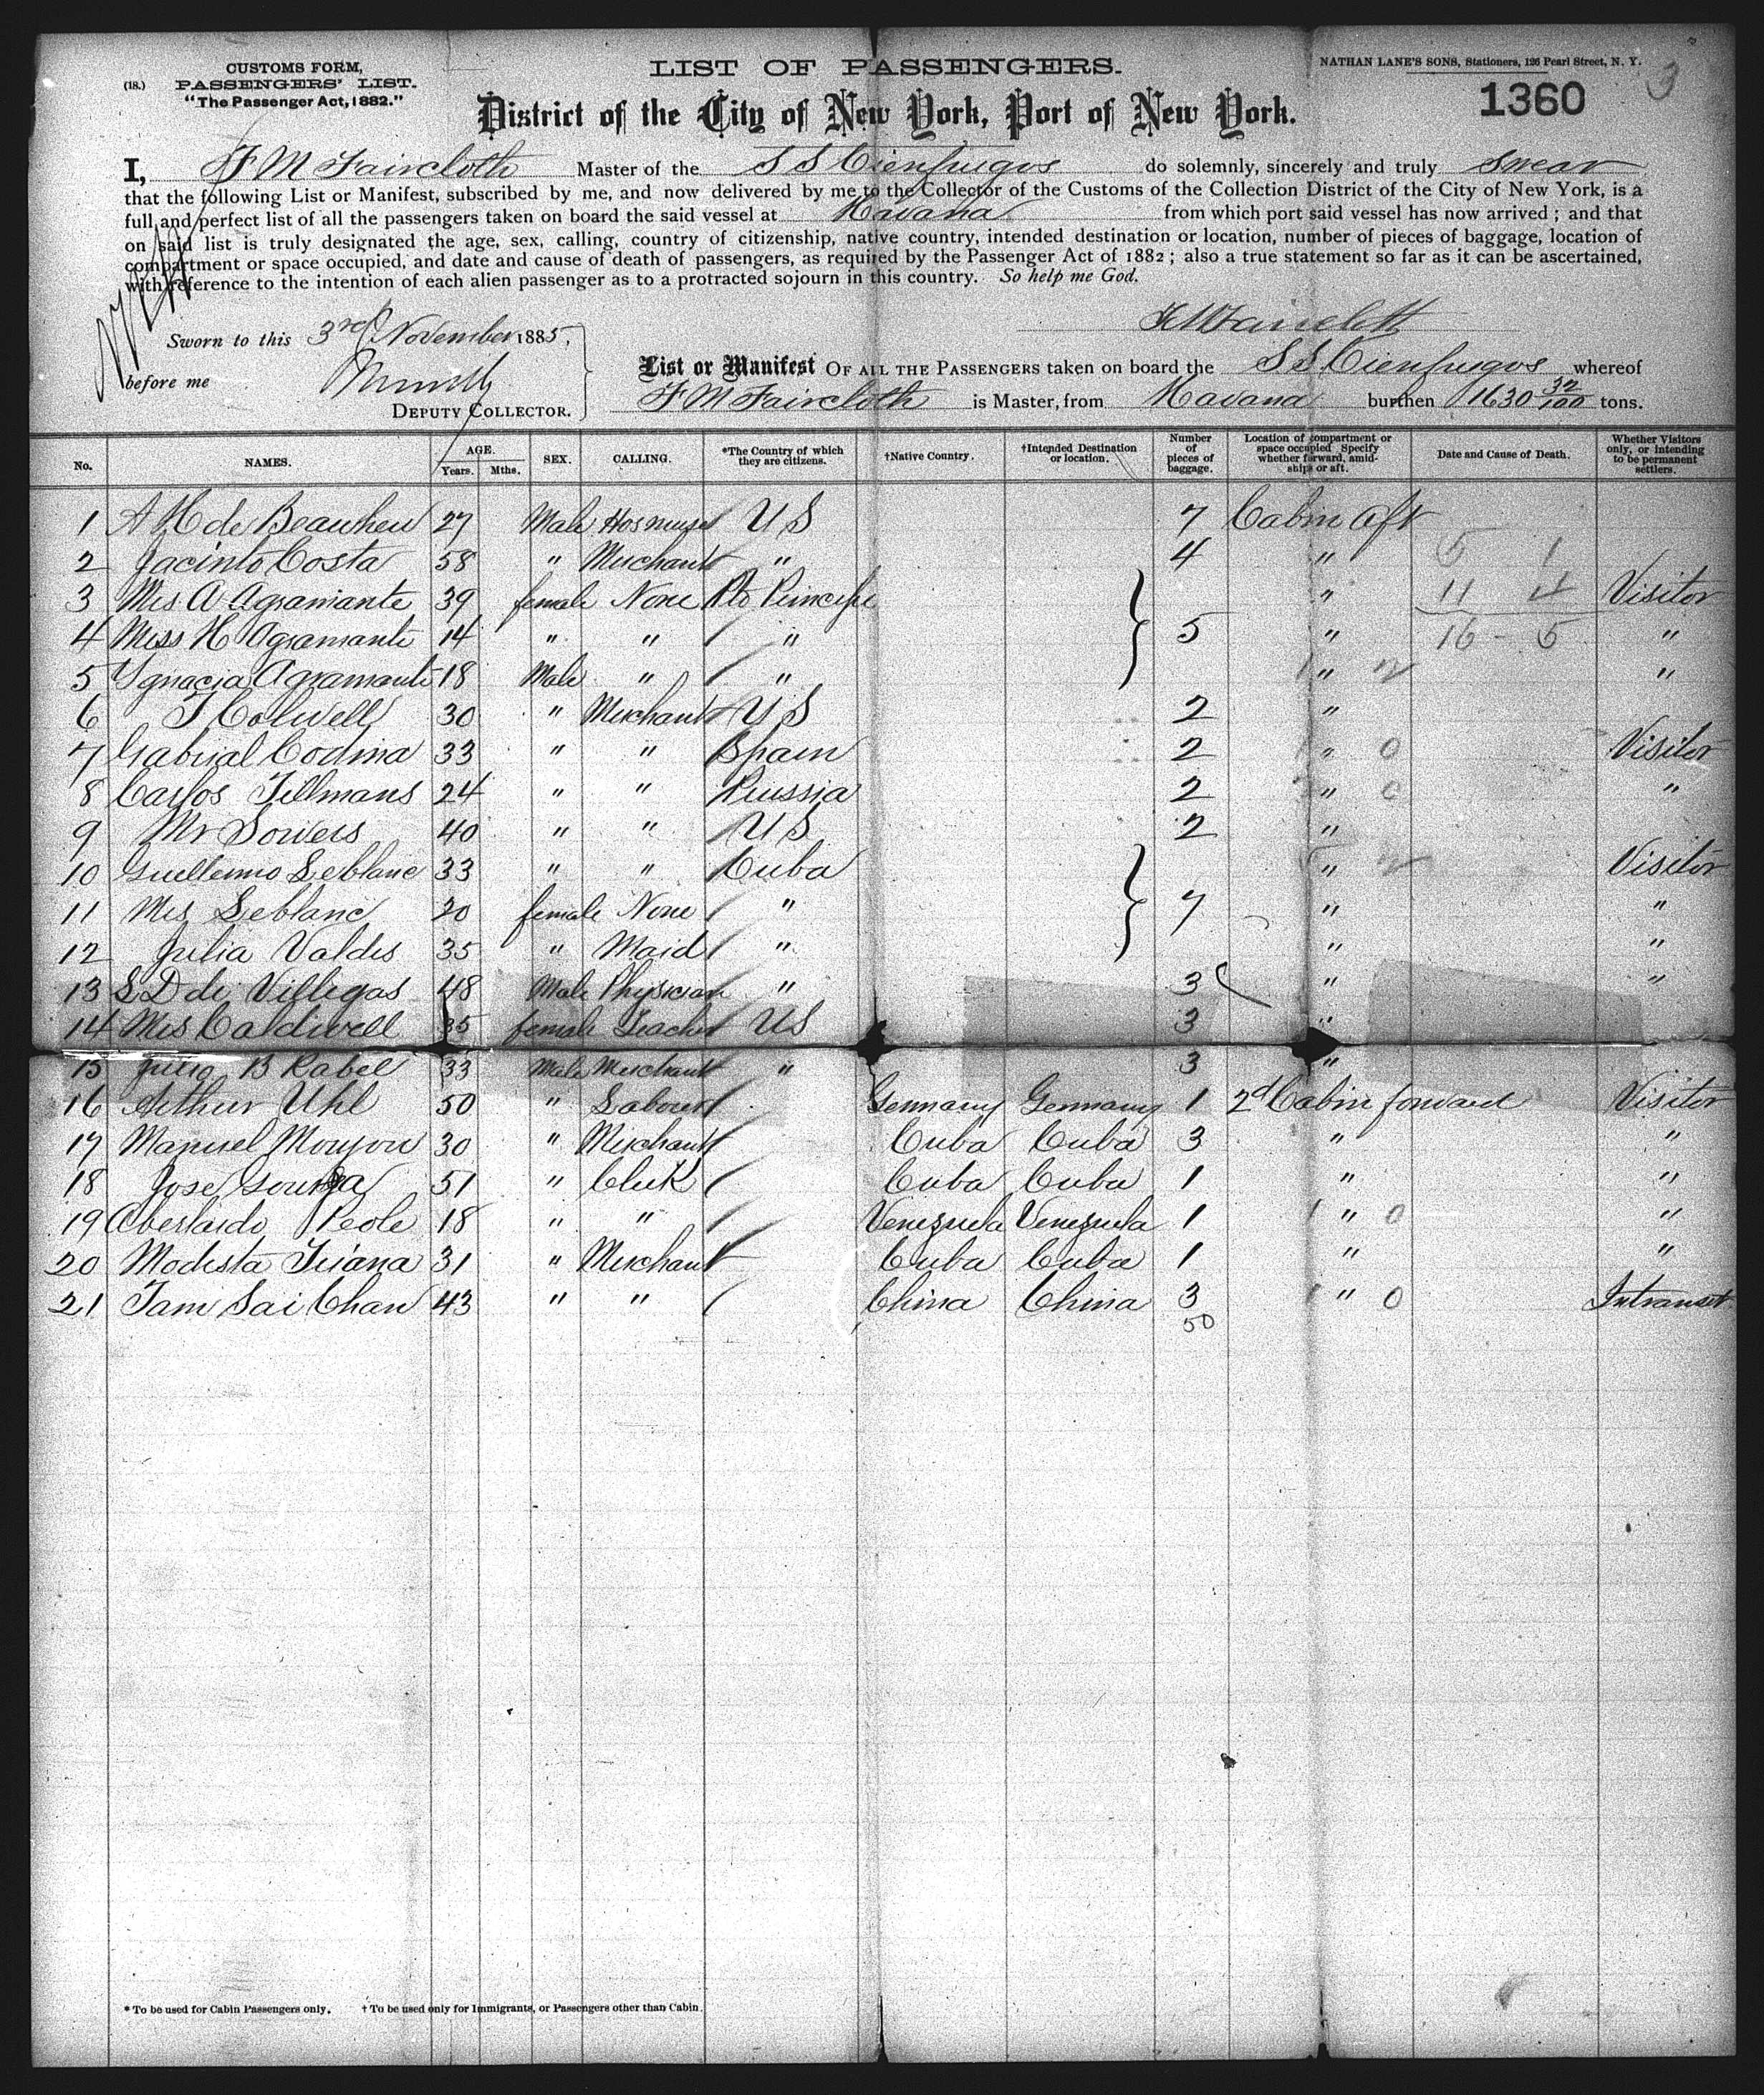 (18.) CUSTOMS FORM, PASSENGERS' LIST. "The Passenger Act, 1882."
LIST OF PASSENGERS.
NATHAN LANE'S SONS, Stationers, 126 Pearl Street, N. Y.
1360 3
District of the City of New York, Port of New York.
I, F M Faircloth Master of the S S Cienfuegos do solemnly, sincerely and truly swear
that the following List or Manifest, subscribed by me, and now delivered by me to the Collector of the Customs of the Collection District of the City of New York, is a
full and perfect list of all the passengers taken on board the said vessel at Havana from which port said vessel has now arrived ; and that
on said list is truly designated the age, sex, calling, country of citizenship, native country, intended destination or location, number of pieces of baggage, location of
compartment or space occupied, and date and cause of death of passengers, as required by the Passenger Act of 1882 ; also a true statement so far as it can be ascertained,
with reference to the intention of each alien passenger as to a protracted sojourn in this country. So help me God.
F M Faircloth
Sworn to this 3rd November 1885,
before me
DEPUTY COLLECTOR.
List or Manifest OF ALL THE PASSENGERS taken on board the S S Cienfuegos whereof
F M Faircloth is Master, from Havana burthen 1630 32/100 tons.
No. NAMES. AGE. Years. Mths. SEX. CALLING. *The Country of which they are citizens. †Native Country. †Intended Destination or location. Number of pieces of baggage. Location of compartment or space occupied Specify whether forward, amidships or aft. Date and Cause of Death. Whether Visitors only, or intending to be permanent settlers.
1 A H de Beauheu 27 Male US 7 Cabin Aft
2 Jacinto Costa 58 " Merchant " 4 " 5 1
3 Mrs A Agramante 39 female None Pto Principe " 11 4 Visitor
4 Miss H Agramante 14 " " " 5 " 16 - 5 "
5 Ygnacia Agramante 18 Male " " " "
6 T Colwell 30 " Merchant US 2 "
7 Gabrial Codina 33 " " Spain 2 " 0 Visitor
8 Carlos Tillmans 24 " " Prussia 2 " 0 "
9 Mr Sowers 40 " " US 2 "
10 Guellermo Leblanc 33 " " Cuba " Visitor
11 Mrs Leblanc 20 female None " 7 " "
12 Julia Valdes 35 " Maid " " "
13 L D de Villegas 48 Male Physician " 3 " "
14 Mrs Caldwell 35 female Teacher US 3 "
15 Julio B Rabel 33 Male Merchant " 3 "
16 Arthur Uhl 50 " Labourer Germany Germany 1 2d Cabin forward Visitor
17 Manuel Mouyou 30 " Merchant Cuba Cuba 3 " "
18 Jose 51 " Clerk Cuba Cuba 1 " "
19 Aberlardo Peole 18 " " Venezuela Venezuela 1 1 " 0 "
20 Modesta Triana 31 " Merchant Cuba Cuba 1 " "
21 Tam Sai Chan 43 " " China China 3 1 " 0 Intransit
50
* To be used for Cabin Passengers only. † To be used only for Immigrants, or Passengers other than Cabin.